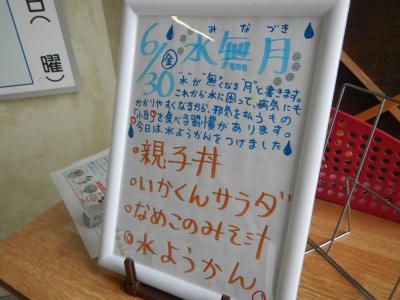 日(曜)
みなづき
6/30(金) 水無月
"水"が"無"くなる"月"と書きます。
これから水に困って、病気にも
かかりやすくなるから、邪気を払うもの
(小豆)を食べる習慣があります。
今日は、水ようかんをつけました
・親子丼
・いかくんサラダ
・なめこのみそ汁
・水ようかん